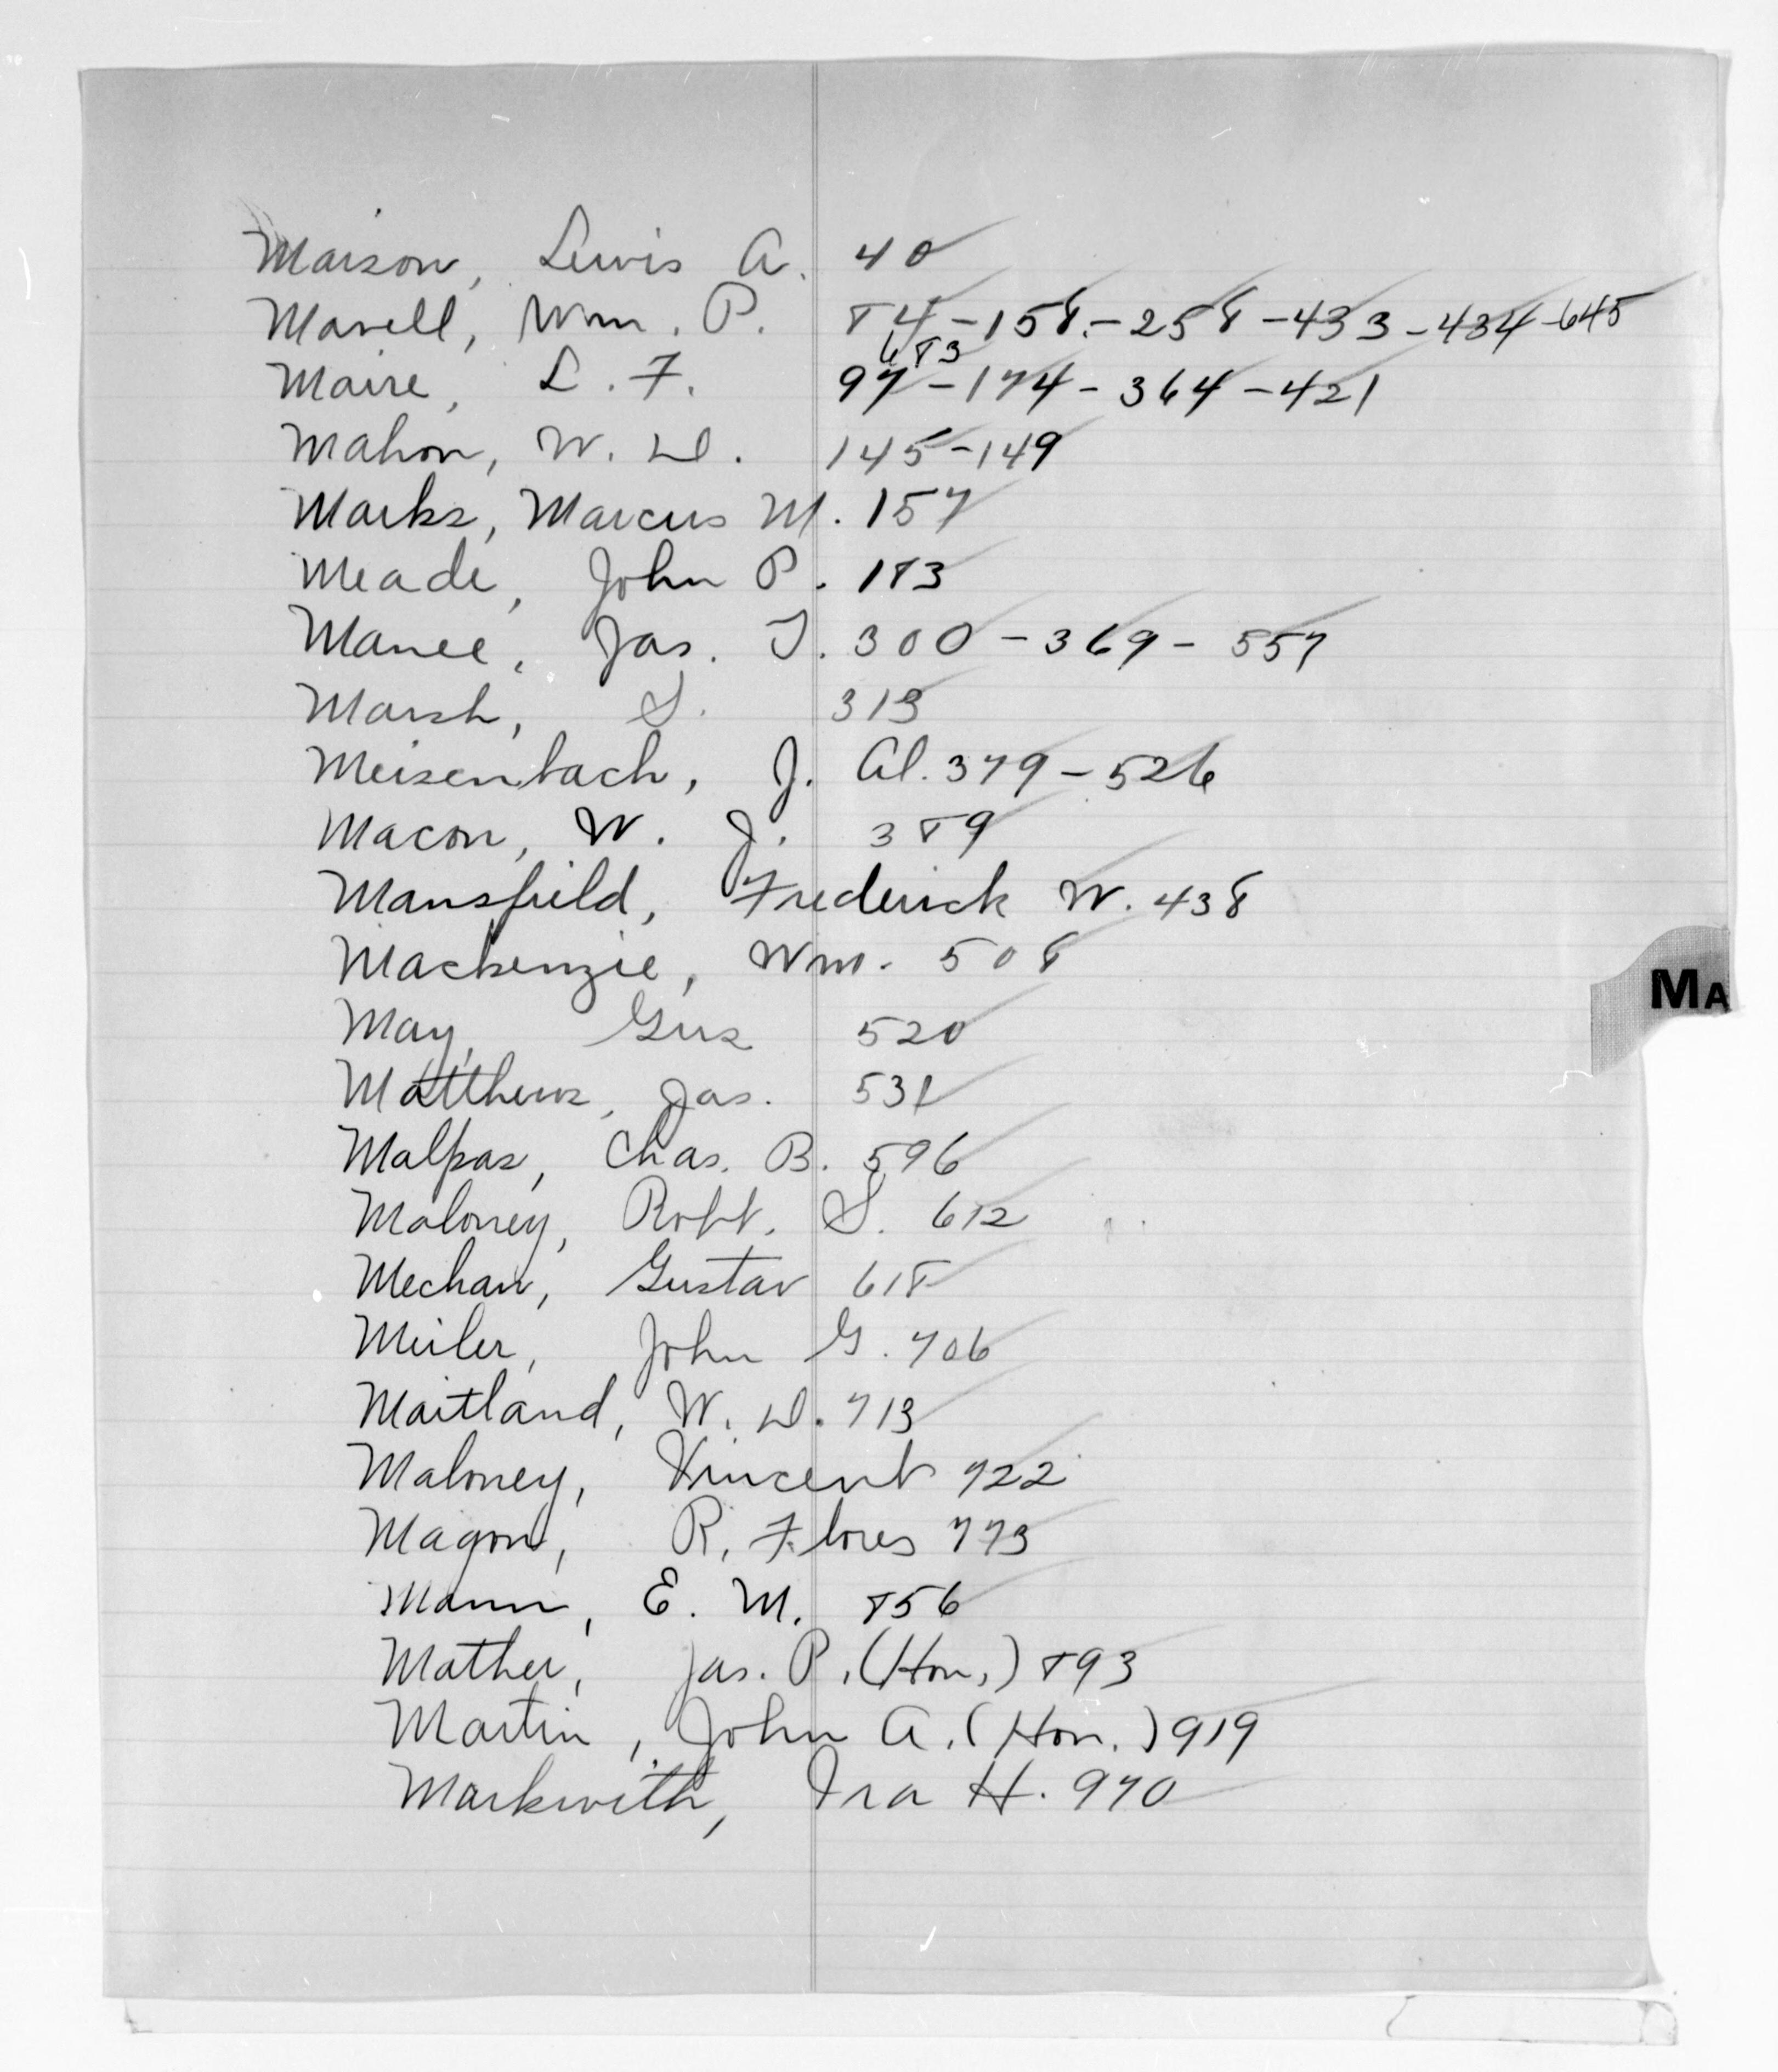 Maison, Lewis A. 40
Marell, Wm. P. 84-158-258-433-434-645
683
Maire, L. F. 97-174-364-421
Mahon, W. D. 145-149
Marks, Marcus M. 157
Meade, John P. 183
Manee, Jas. T. 300-369-557
Marsh, S. 313
Meisenbach, J. Al. 379-526
Macon, W. J. 389
Mansfield, Frederick W. 438
Mackenzie, Wm. 508
May, Gus 520
Matthews, Jas. 531
Malpas, Chas. B. 596
Maloney, Robt. S. 612
Mechan, Gustav 618
Meiler, John G. 706
Maitland, W. D. 713
Maloney, Vincent 722
Magon, R. Flores 773
Mann, E. M. 856
Mather, Jas. P. (Hon.) 893
Martin, John A. (Hon.) 919
Markwith, Ira H. 970
MA